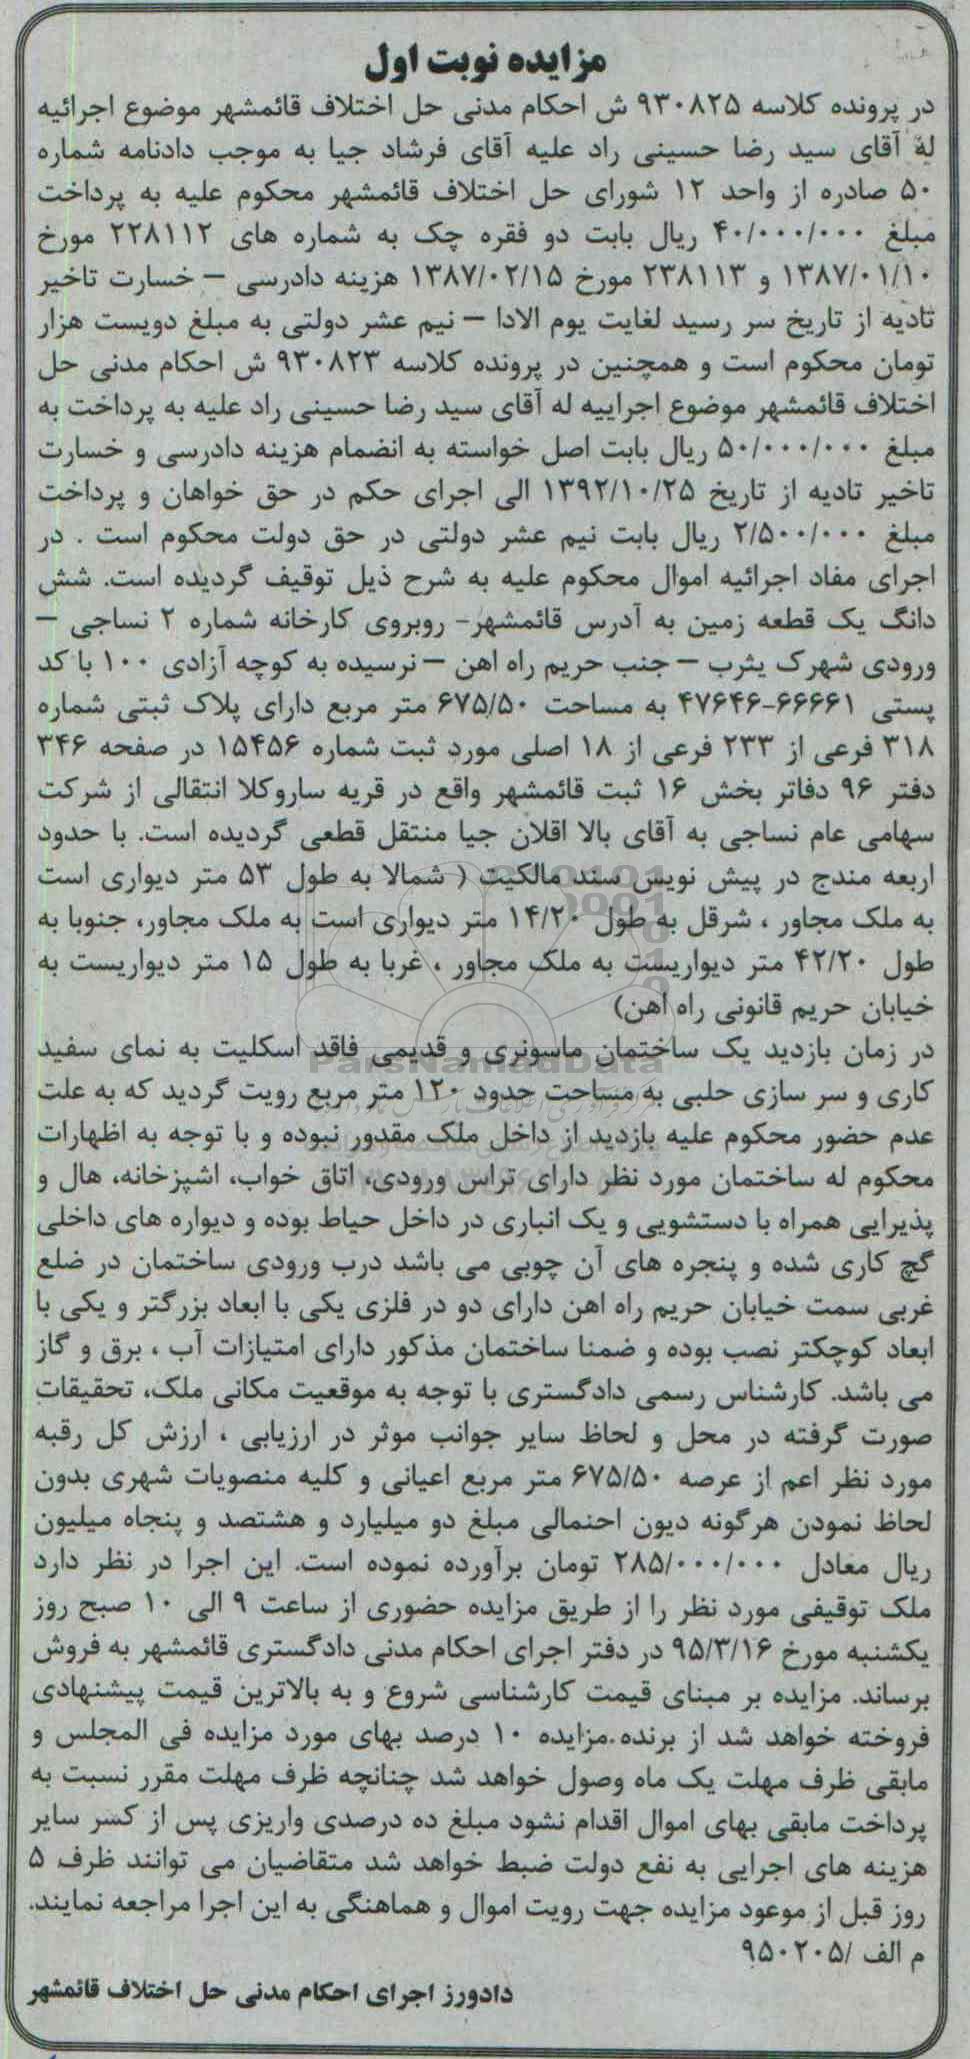 مزایده نوبت اول
در پرونده کلاسه ۹۳۰۸۲۵ ش احکام مدنی حل اختلاف قائمشهر موضوع اجرائیه
له آقای سید رضا حسینی راد علیه آقای فرشاد جیا به موجب دادنامه شماره
۵۰ صادره از واحد ۱۲ شورای حل اختلاف قائمشهر محکوم علیه به پرداخت
مبلغ ۴۰/۰۰۰/۰۰۰ ریال بابت دو فقره چک به شماره های ۲۲۸۱۱۲ مورخ
۱۳۸۷/۰۱/۱۰ و ۲۳۸۱۱۳ مورخ ۱۳۸۷/۰۲/۱۵ هزینه دادرسی – خسارت تاخیر
تادیه از تاریخ سر رسید لغایت یوم الادا – نیم عشر دولتی به مبلغ دویست هزار
تومان محکوم است و همچنین در پرونده کلاسه ۹۳۰۸۲۳ ش احکام مدنی حل
اختلاف قائمشهر موضوع اجراییه له آقای سید رضا حسینی راد علیه به پرداخت به
مبلغ ۵۰/۰۰۰/۰۰۰ ریال بابت اصل خواسته به انضمام هزینه دادرسی و خسارت
تاخیر تادیه از تاریخ ۱۳۹۲/۱۰/۲۵ الی اجرای حکم در حق خواهان و پرداخت
مبلغ ۲/۵۰۰/۰۰۰ ریال بابت نیم عشر دولتی در حق دولت محکوم است . در
اجرای مفاد اجرائیه اموال محکوم علیه به شرح ذیل توقیف گردیده است. شش
دانگ یک قطعه زمین به آدرس قائمشهر- روبروی کارخانه شماره ۲ نساجی –
ورودی شهرک یثرب – جنب حریم راه اهن – نرسیده به کوچه آزادی ۱۰۰ با کد
پستی ۶۶۶۶۱-۴۷۶۴۶ به مساحت ۶۷۵/۵۰ متر مربع دارای پلاک ثبتی شماره
۳۱۸ فرعی از ۲۳۳ فرعی از ۱۸ اصلی مورد ثبت شماره ۱۵۴۵۶ در صفحه ۳۴۶
دفتر ۹۶ دفاتر بخش ۱۶ ثبت قائمشهر واقع در قریه ساروکلا انتقالی از شرکت
سهامی عام نساجی به آقای بالا اقلان جیا منتقل قطعی گردیده است. با حدود
اربعه مندج در پیش نویس سند مالکیت ( شمالا به طول ۵۳ متر دیواری است
به ملک مجاور ، شرقل به طول ۱۴/۲۰ متر دیواری است به ملک مجاور، جنوبا به
طول ۴۲/۲۰ متر دیواریست به ملک مجاور ، غربا به طول ۱۵ متر دیواریست به
خیابان حریم قانونی راه اهن)
در زمان بازدید یک ساختمان ماسونری و قدیمی فاقد اسکلیت به نمای سفید
کاری و سر سازی حلبی به مساحت حدود ۱۲۰ متر مربع رویت گردید که به علت
عدم حضور محکوم علیه بازدید از داخل ملک مقدور نبوده و با توجه به اظهارات
محکوم له ساختمان مورد نظر دارای تراس ورودی، اتاق خواب، اشپزخانه، هال و
پذیرایی همراه با دستشویی و یک انباری در داخل حیاط بوده و دیواره های داخلی
گچ کاری شده و پنجره های آن چوبی می باشد درب ورودی ساختمان در ضلع
غربی سمت خیابان حریم راه اهن دارای دو در فلزی یکی با ابعاد بزرگتر و یکی با
ابعاد کوچکتر نصب بوده و ضمنا ساختمان مذکور دارای امتیازات آب ، برق و گاز
می باشد. کارشناس رسمی دادگستری با توجه به موقعیت مکانی ملک، تحقیقات
صورت گرفته در محل و لحاظ سایر جوانب موثر در ارزیابی ، ارزش کل رقبه
مورد نظر اعم از عرصه ۶۷۵/۵۰ متر مربع اعیانی و کلیه منصوبات شهری بدون
لحاظ نمودن هرگونه دیون احتمالی مبلغ دو میلیارد و هشتصد و پنجاه میلیون
ریال معادل ۲۸۵/۰۰۰/۰۰۰ تومان برآورده نموده است. این اجرا در نظر دارد
ملک توقیفی مورد نظر را از طریق مزایده حضوری از ساعت ۹ الی ۱۰ صبح روز
یکشنبه مورخ ۹۵/۳/۱۶ در دفتر اجرای احکام مدنی دادگستری قائمشهر به فروش
برساند. مزایده بر مبنای قیمت کارشناسی شروع و به بالاترین قیمت پیشنهادی
فروخته خواهد شد از برنده.مزایده ۱۰ درصد بهای مورد مزایده فی المجلس و
مابقی ظرف مهلت یک ماه وصول خواهد شد چنانچه ظرف مهلت مقرر نسبت به
پرداخت مابقی بهای اموال اقدام نشود مبلغ ده درصدی واریزی پس از کسر سایر
هزینه های اجرایی به نفع دولت ضبط خواهد شد متقاضیان می توانند ظرف ۵
روز قبل از موعود مزایده جهت رویت اموال و هماهنگی به این اجرا مراجعه نمایند.
م الف /۹۵۰۲۰۵
دادورز اجرای احکام مدنی حل اختلاف قائمشهر
ParsNamadData